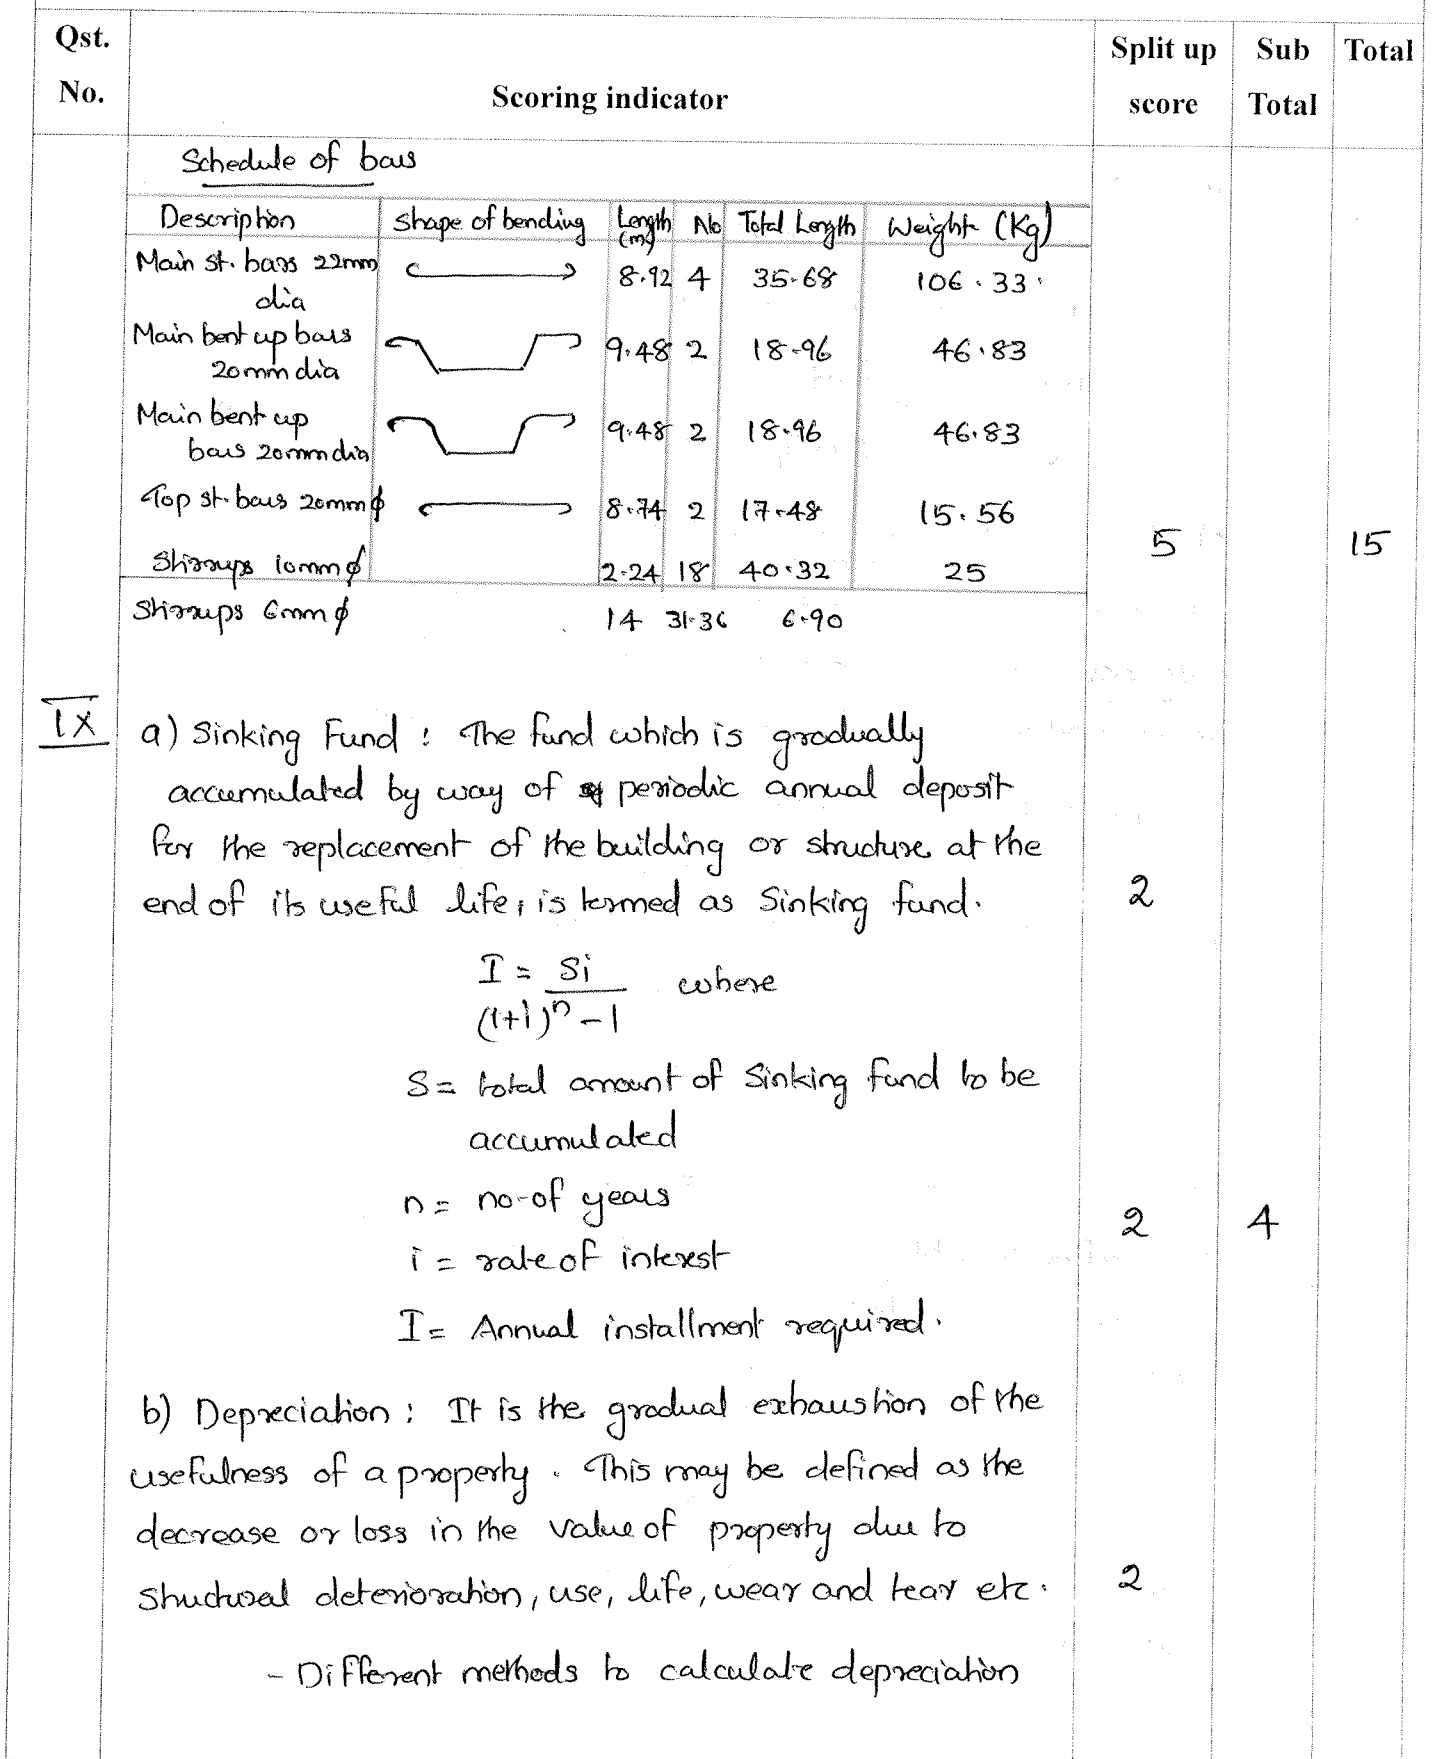 Qst. No. Scoring indicator Split up score Sub Total Total
Schedule of bars
Description shape of bending Length (m) No Total Length Weight (Kg)
Main st. bars 22mm dia 8.92 4 35.68 106.33
Main bent up bars 20mm dia 9.48 2 18.96 46.83
Main bent up bars 20mm dia 9.48 2 18.96 46.83
Top st. bars 20mm ϕ 8.74 2 17.48 15.56
Stirrups 10mm ϕ 2.24 18 40.32 25
5 15
Stirrups 6mm ϕ 14 31.36 6.90
IX a) Sinking Fund : The fund which is gradually
accumulated by way of periodic annual deposit
for the replacement of the building or structure at the
end of its useful life, is termed as Sinking fund. 2
I = Si / (1+i)^n - 1 where
S = total amount of Sinking fund to be
accumulated
n = no. of years 2 4
i = rate of interest
I = Annual installment required.
b) Depreciation : It is the gradual exhaustion of the
usefulness of a property. This may be defined as the
decrease or loss in the value of property due to
structural deterioration, use, life, wear and tear etc. 2
- Different methods to calculate depreciation